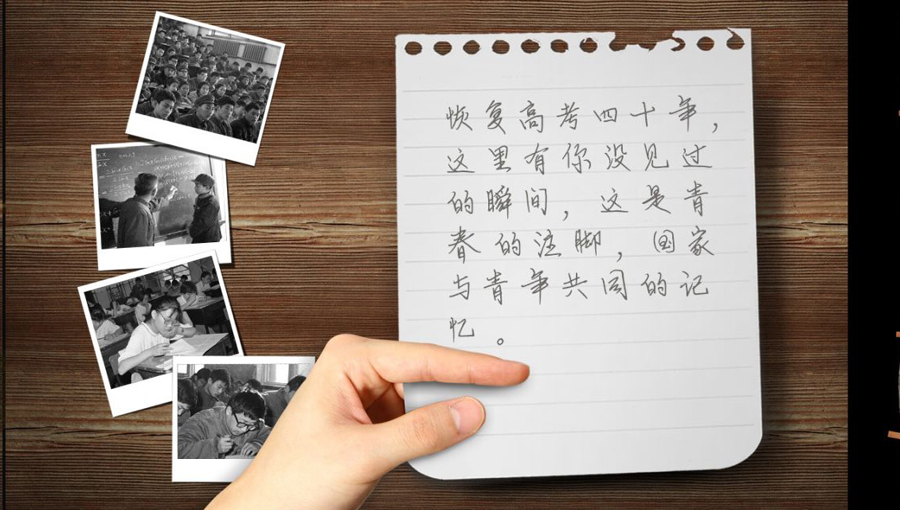 恢复高考四十年，
这里有你没见过
的瞬间，这是青
春的注脚，国家
与青年共同的记
忆。